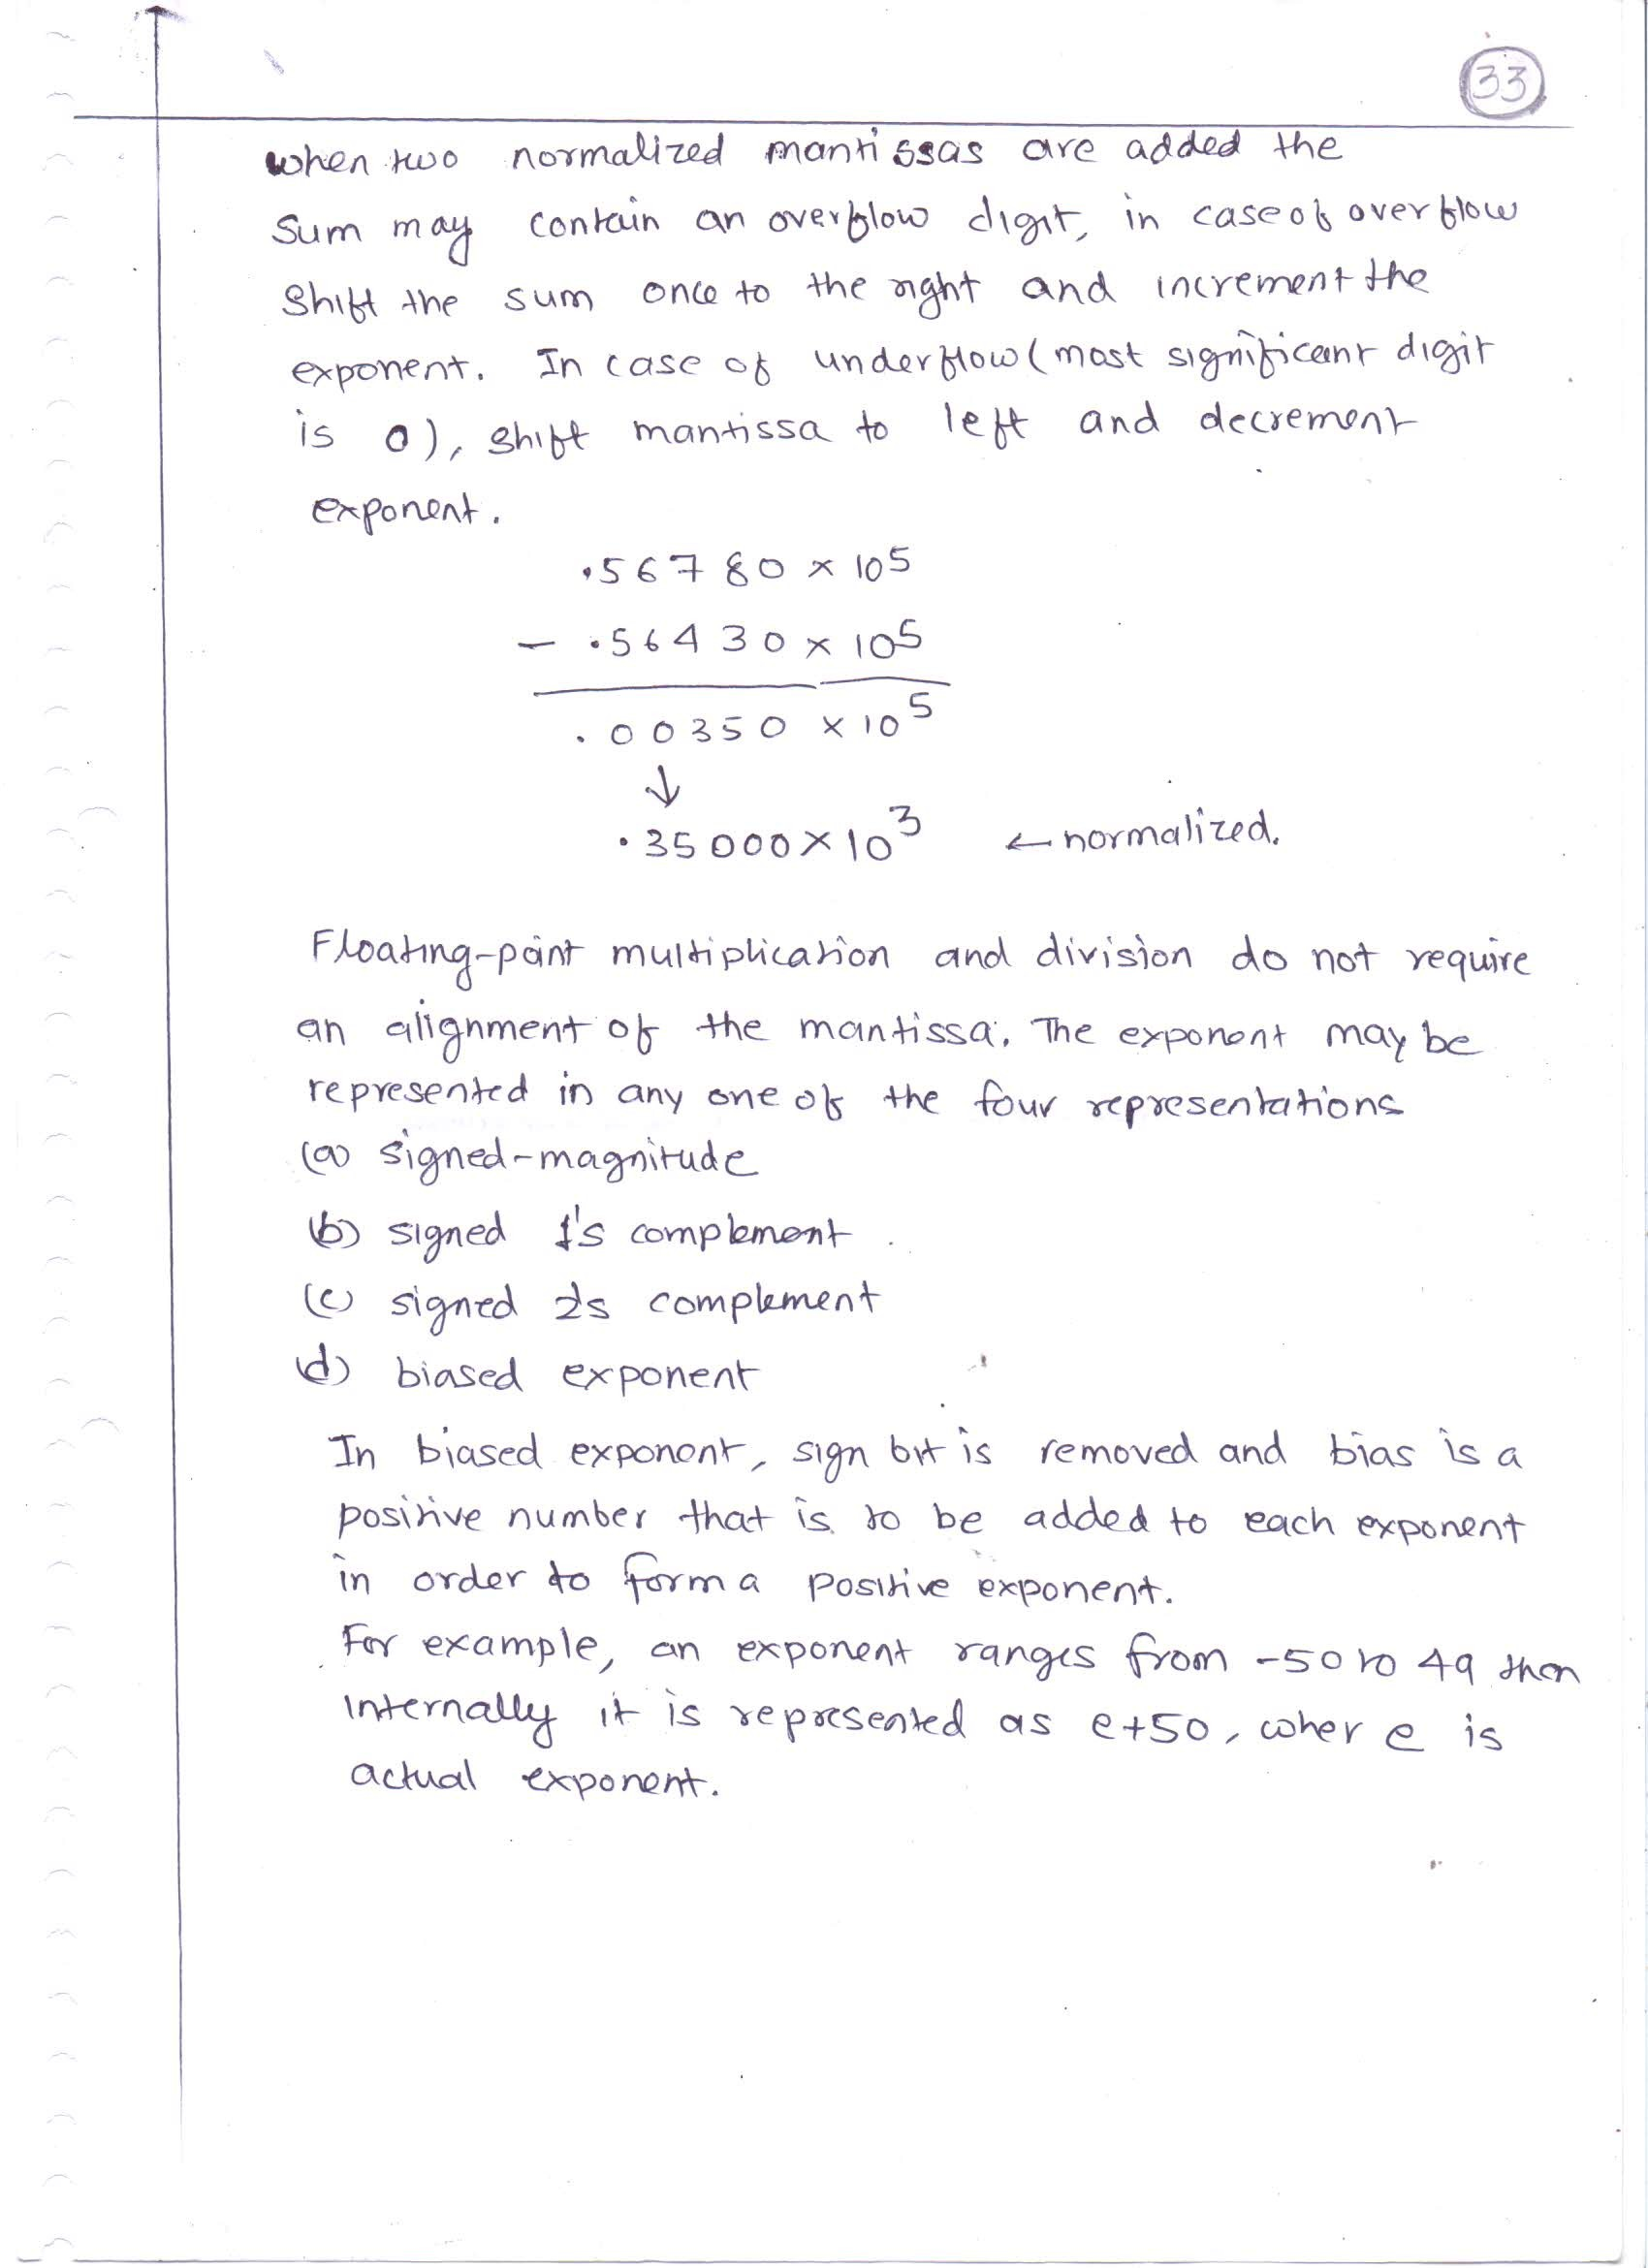 33
when two normalized mantissas are added the
Sum may contain an overflow digit, in case of overflow
Shift the sum once to the right and increment the
exponent. In case of underflow (most significant digit
is 0), shift mantissa to left and decrement
exponent.
.56780 × 10⁵
- .56430 × 10⁵
.00350 × 10⁵
↓
.35000 × 10³ ← normalized.
Floating-point multiplication and division do not require
an alignment of the mantissa. The exponent may be
represented in any one of the four representations
(a) signed-magnitude
(b) signed 1's complement
(c) signed 2s complement
(d) biased exponent
In biased exponent, sign bit is removed and bias is a
positive number that is to be added to each exponent
in order to form a positive exponent.
For example, an exponent ranges from -50 to 49 then
Internally it is represented as e+50, wher e is
actual exponent.